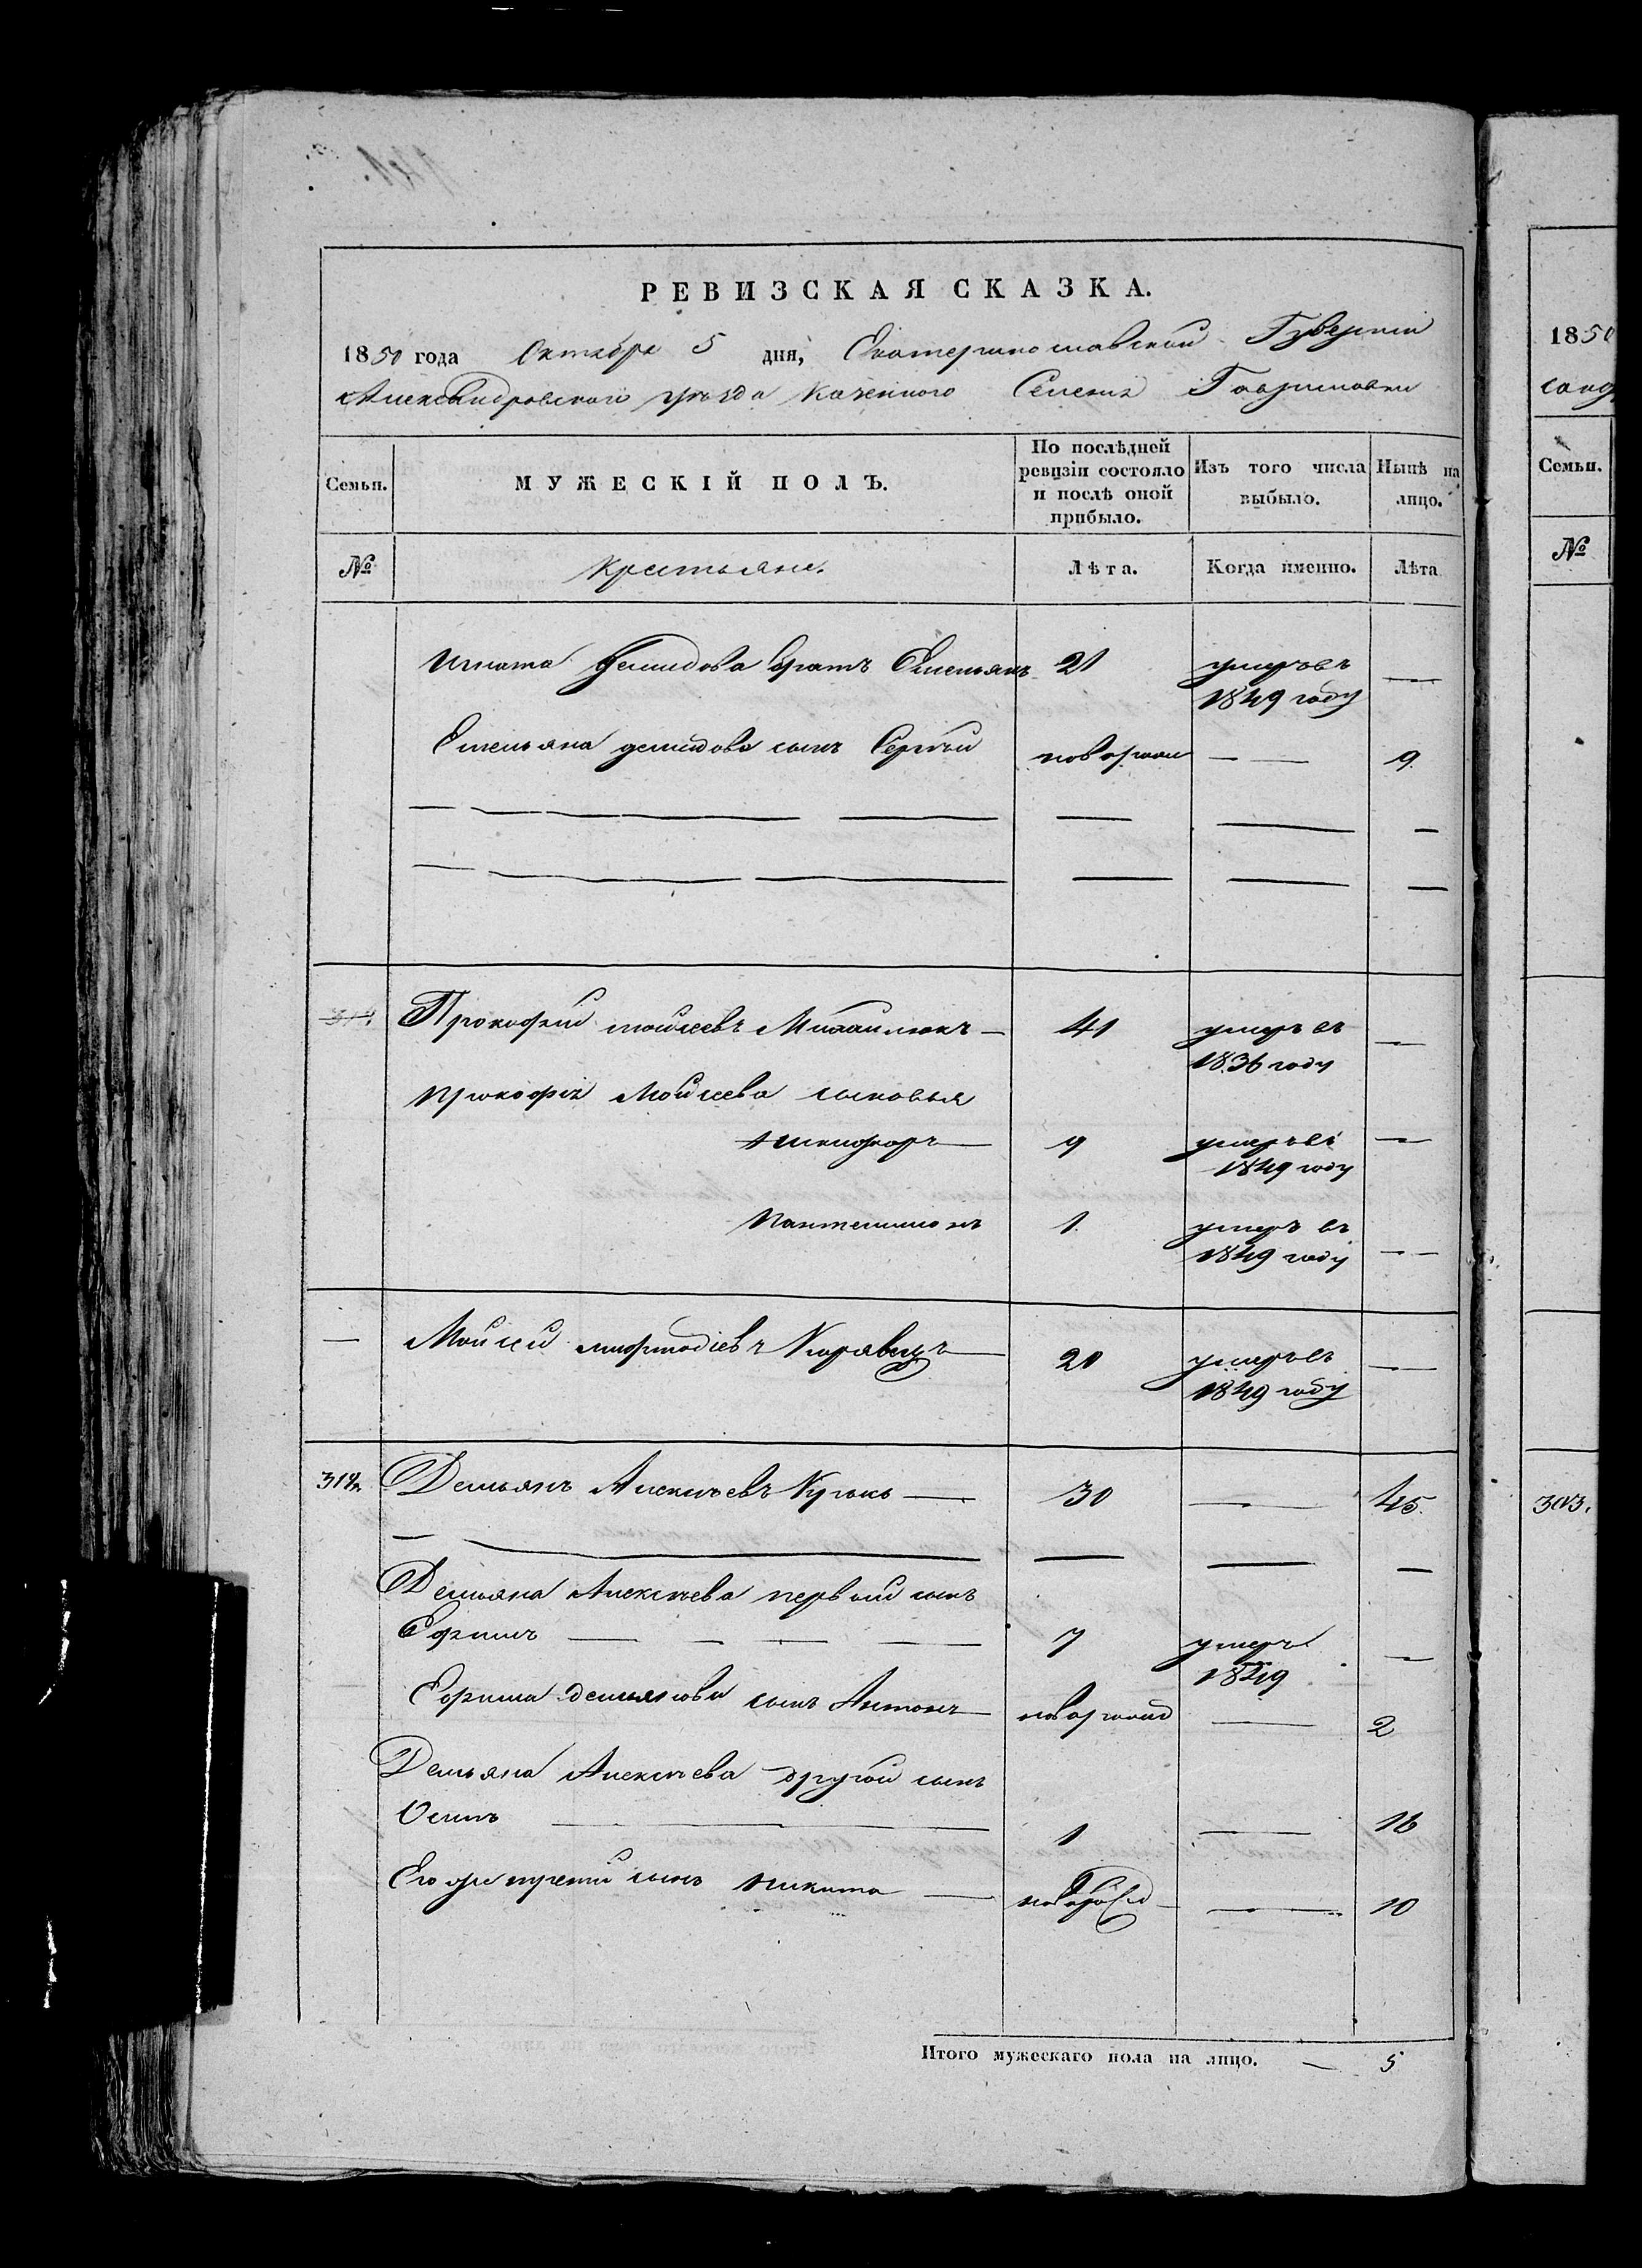 РЕВИЗСКАЯ СКАЗКА.
1850 года Октября 5 дня, Екатеринославской Губернии
Александровского уезда Казенного Селения Гавриловки
Семьи.
МУЖЕСКІЙ ПОЛЪ.
По послѣдней ревизіи состояло и послѣ оной прибыло.
Изъ того числа выбыло.
Нынѣ на лицо.
№
Крестьяне.
Лѣта.
Когда именно.
Лѣта
Игната Демидова братъ Емельянъ 21 умеръ въ 1849 году —
Емельяна Демидова сынъ Сергѣй новорожден — 9
Прокофий Мойсеевъ Михайлюкъ — 41 умеръ въ 1836 году —
Прокофія Мойсеева сыновья
Никифоръ — 9 умеръ въ 1849 году —
Пантелимонъ 1. умеръ въ 1849 году —
— Мойсей Кравецъ — 20 умеръ въ 1849 году —
Демьянъ Алексѣевъ — 30 — 45.
Демьяна Алексѣева первый сынъ
Ефимъ — 7 умеръ 1849 —
Ефима Демьянова сынъ Антонъ — новорожд — 2
Демьяна Алексѣева другой сынъ
Осипъ — 1 — 16
Его же третій сынъ Никита — новорожд — 10
Итого мужескаго пола на лицо. — 5
1850
Семьи.
№
303.